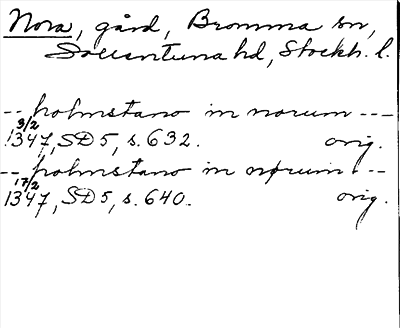 Nora, gård, Bromma sn,
Sollentuna hd, Stockh. l.
-- holmstano in norum ---
3/2
1347, SD 5, s. 632. orig.
-- holmstano in nørum ---
17/2
1347, SD 5, s. 640. orig.